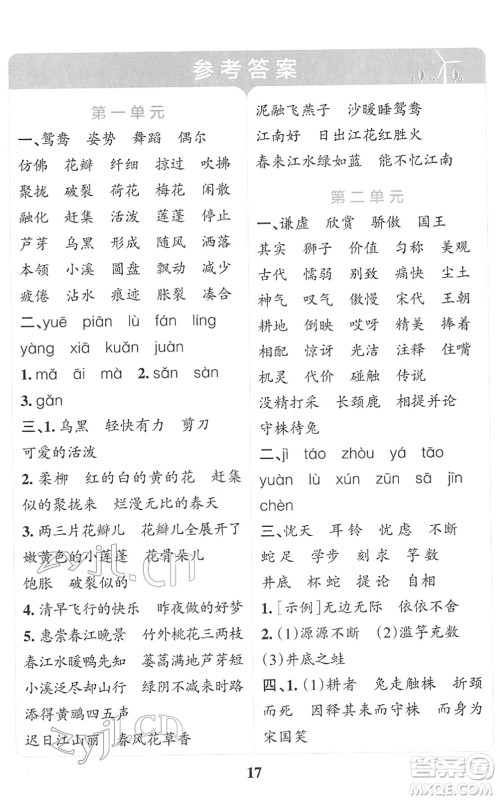 参考答案
第一单元
一、鸳鸯 姿势 舞蹈 偶尔
仿佛 花瓣 纤细 掠过 吹拂
聚拢 破裂 荷花 梅花 闲散
融化 赶集 活泼 莲蓬 停止
芦芽 乌黑 形成 随风 洒落
本领 小溪 圆盘 飘动 减少
疲倦 沾水 痕迹 胀裂 凑合
二、yuē piān lù fán líng
yàng xiā kuǎn juàn
1. mǎ āi mà 2. sǎn sàn
3. gǎn
三、1. 乌黑 轻快有力 剪刀
可爱的活泼
2. 柔柳 红的白的黄的花 赶集
似的聚拢来 烂漫无比的春天
3. 两三片花瓣儿 花瓣儿全展开了
嫩黄色的小莲蓬 花骨朵儿
饱胀 破裂似的
4. 清早飞行的快乐 昨夜做的好梦
5. 惠崇春江晚景 竹外桃花三两枝
春江水暖鸭先知 蒌蒿满地芦芽短
小溪泛尽却山行 绿阴不减来时路
添得黄鹂四五声
迟日江山丽 春风花草香
泥融飞燕子 沙暖睡鸳鸯
江南好 日出江花红胜火
春来江水绿如蓝 能不忆江南
第二单元
一、谦虚 欣赏 骄傲 国王
其实 狮子 价值 匀称 美观
古代 懦弱 别致 痛快 尘土
神气 叹气 傲慢 宋代 王朝
耕地 倒映 哎呀 精美 捧着
相貌 惊讶 光洁 注释 住嘴
机灵 代价 碰触 传说
没精打采 长颈鹿 相提并论
守株待兔
二、jì táo zhòu yá tāo
yuán lù xún zūn sā jīn
chèn
三、忧天 耳铃 忧虑 不断
蛇足 学步 刻求 竽数
井底 杯蛇 提论 自相
1. [示例]无边无际
2. (1)源源不断 (2)滥竽充数
(3)井底之蛙
四、1. (1)耕者 兔走触株 折颈
而死 因释其耒而守株 而身为
宋国笑
17